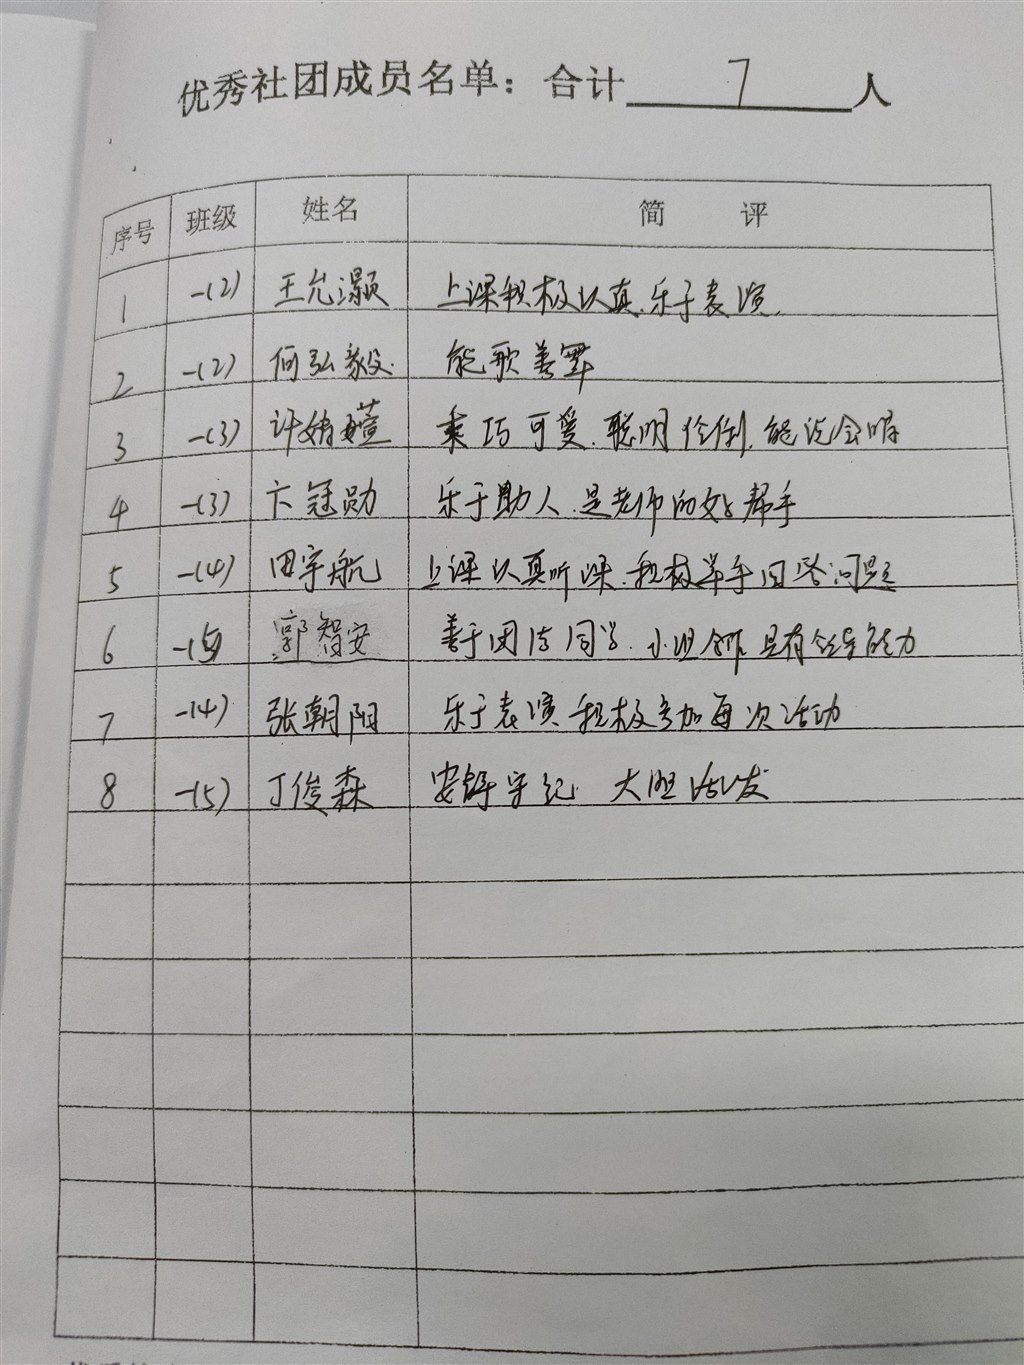 优秀社团成员名单：合计 7 人
序号 班级 姓名 简 评
1 一(2) 王允灏 上课积极认真.乐于表演.
2 一(2) 何弘毅 能歌善舞
3 一(3) 许婧萱 乖巧可爱.聪明伶俐.能说会唱
4 一(3) 卞冠勋 乐于助人.是老师的好帮手
5 一(4) 田宇航 上课认真听课.积极举手回答问题
6 一(5) 郭智安 善于团结同学.小组合作具有领导能力
7 一(4) 张朝阳 乐于表演 积极参加每次活动
8 一(5) 丁俊森 安静守纪 大胆活发